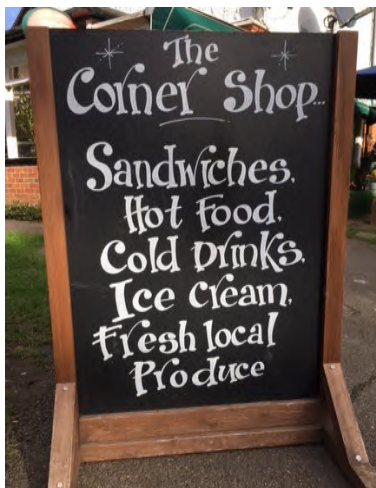 The
Corner Shop...
Sandwiches.
Hot Food.
Cold Drinks.
Ice Cream.
Fresh local
Produce